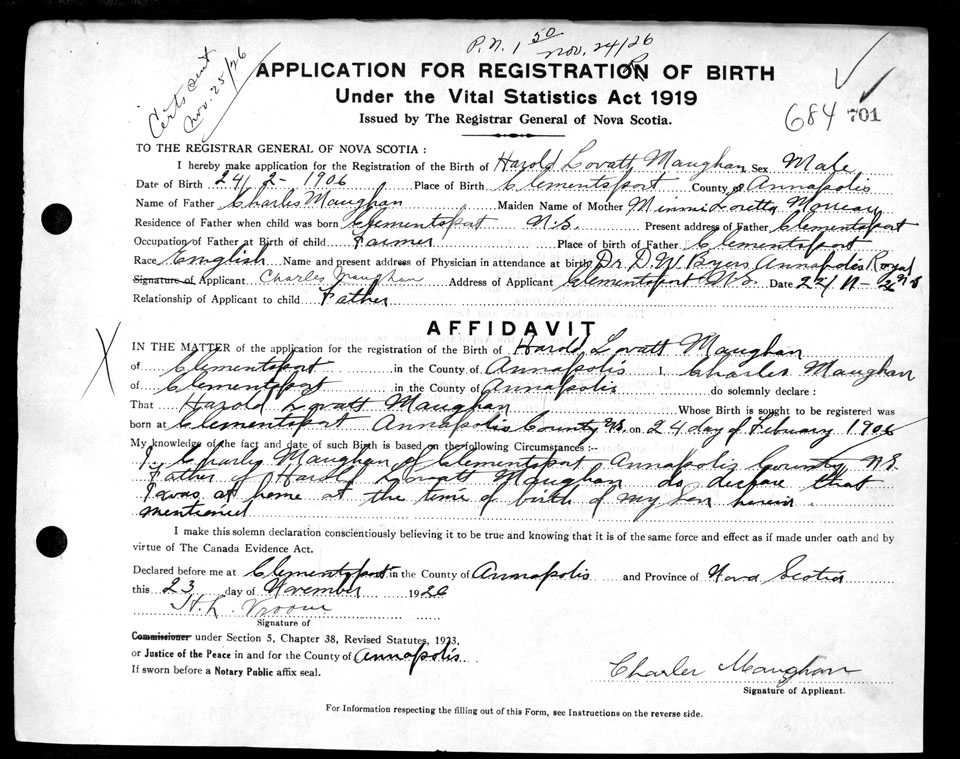 P.N. 1 50 Nov. 24/26
Certs out
Nov. 25/26
APPLICATION FOR REGISTRATION OF BIRTH
Under the Vital Statistics Act 1919
Issued by The Registrar General of Nova Scotia.
684 701
TO THE REGISTRAR GENERAL OF NOVA SCOTIA :
I hereby make application for the Registration of the Birth of Harold Lovatt Maughan Sex Male
Date of Birth 24/2-1906 Place of Birth Clementsport County of Annapolis
Name of Father Charles Maughan Maiden Name of Mother Minni Loretta
Residence of Father when child was born Clementsport N.S. Present address of Father Clementsport
Occupation of Father at Birth of child Farmer Place of birth of Father Clementsport
Race English Name and present address of Physician in attendance at birth Dr. D. W Byers Annapolis Royal N.S
Signature of Applicant Charles Maughan Address of Applicant Clementsport N.S. Date 22/11-26
Relationship of Applicant to child Father
AFFIDAVIT
IN THE MATTER of the application for the registration of the Birth of Harold Lovatt Maughan
of Clementsport in the County of Annapolis I, Charles Maughan
of Clementsport in the County of Annapolis do solemnly declare :
That Harold Lovatt Maughan Whose Birth is sought to be registered was
born at Clementsport Annapolis County N.S. on 24 day of Febuary 1906
My knowledge of the fact and date of such Birth is based on the following Circumstances :--
I, Charles Maughan of Clementsport Annapolis County N.S.
Father of Harold Lovatt Maughan do declare that
I was at home at the time of birth of my Son herein
mentioned
I make this solemn declaration conscientiously believing it to be true and knowing that it is of the same force and effect as if made under oath and by
virtue of The Canada Evidence Act.
Declared before me at Clementsport in the County of Annapolis and Province of Nova Scotia
this 23 day of November 1926
H. L. Vroom
Signature of
Commissioner under Section 5, Chapter 38, Revised Statutes, 1923,
or Justice of the Peace in and for the County of Annapolis
If sworn before a Notary Public affix seal.
Charles Maughan
Signature of Applicant.
For Information respecting the filling out of this Form, see Instructions on the reverse side.